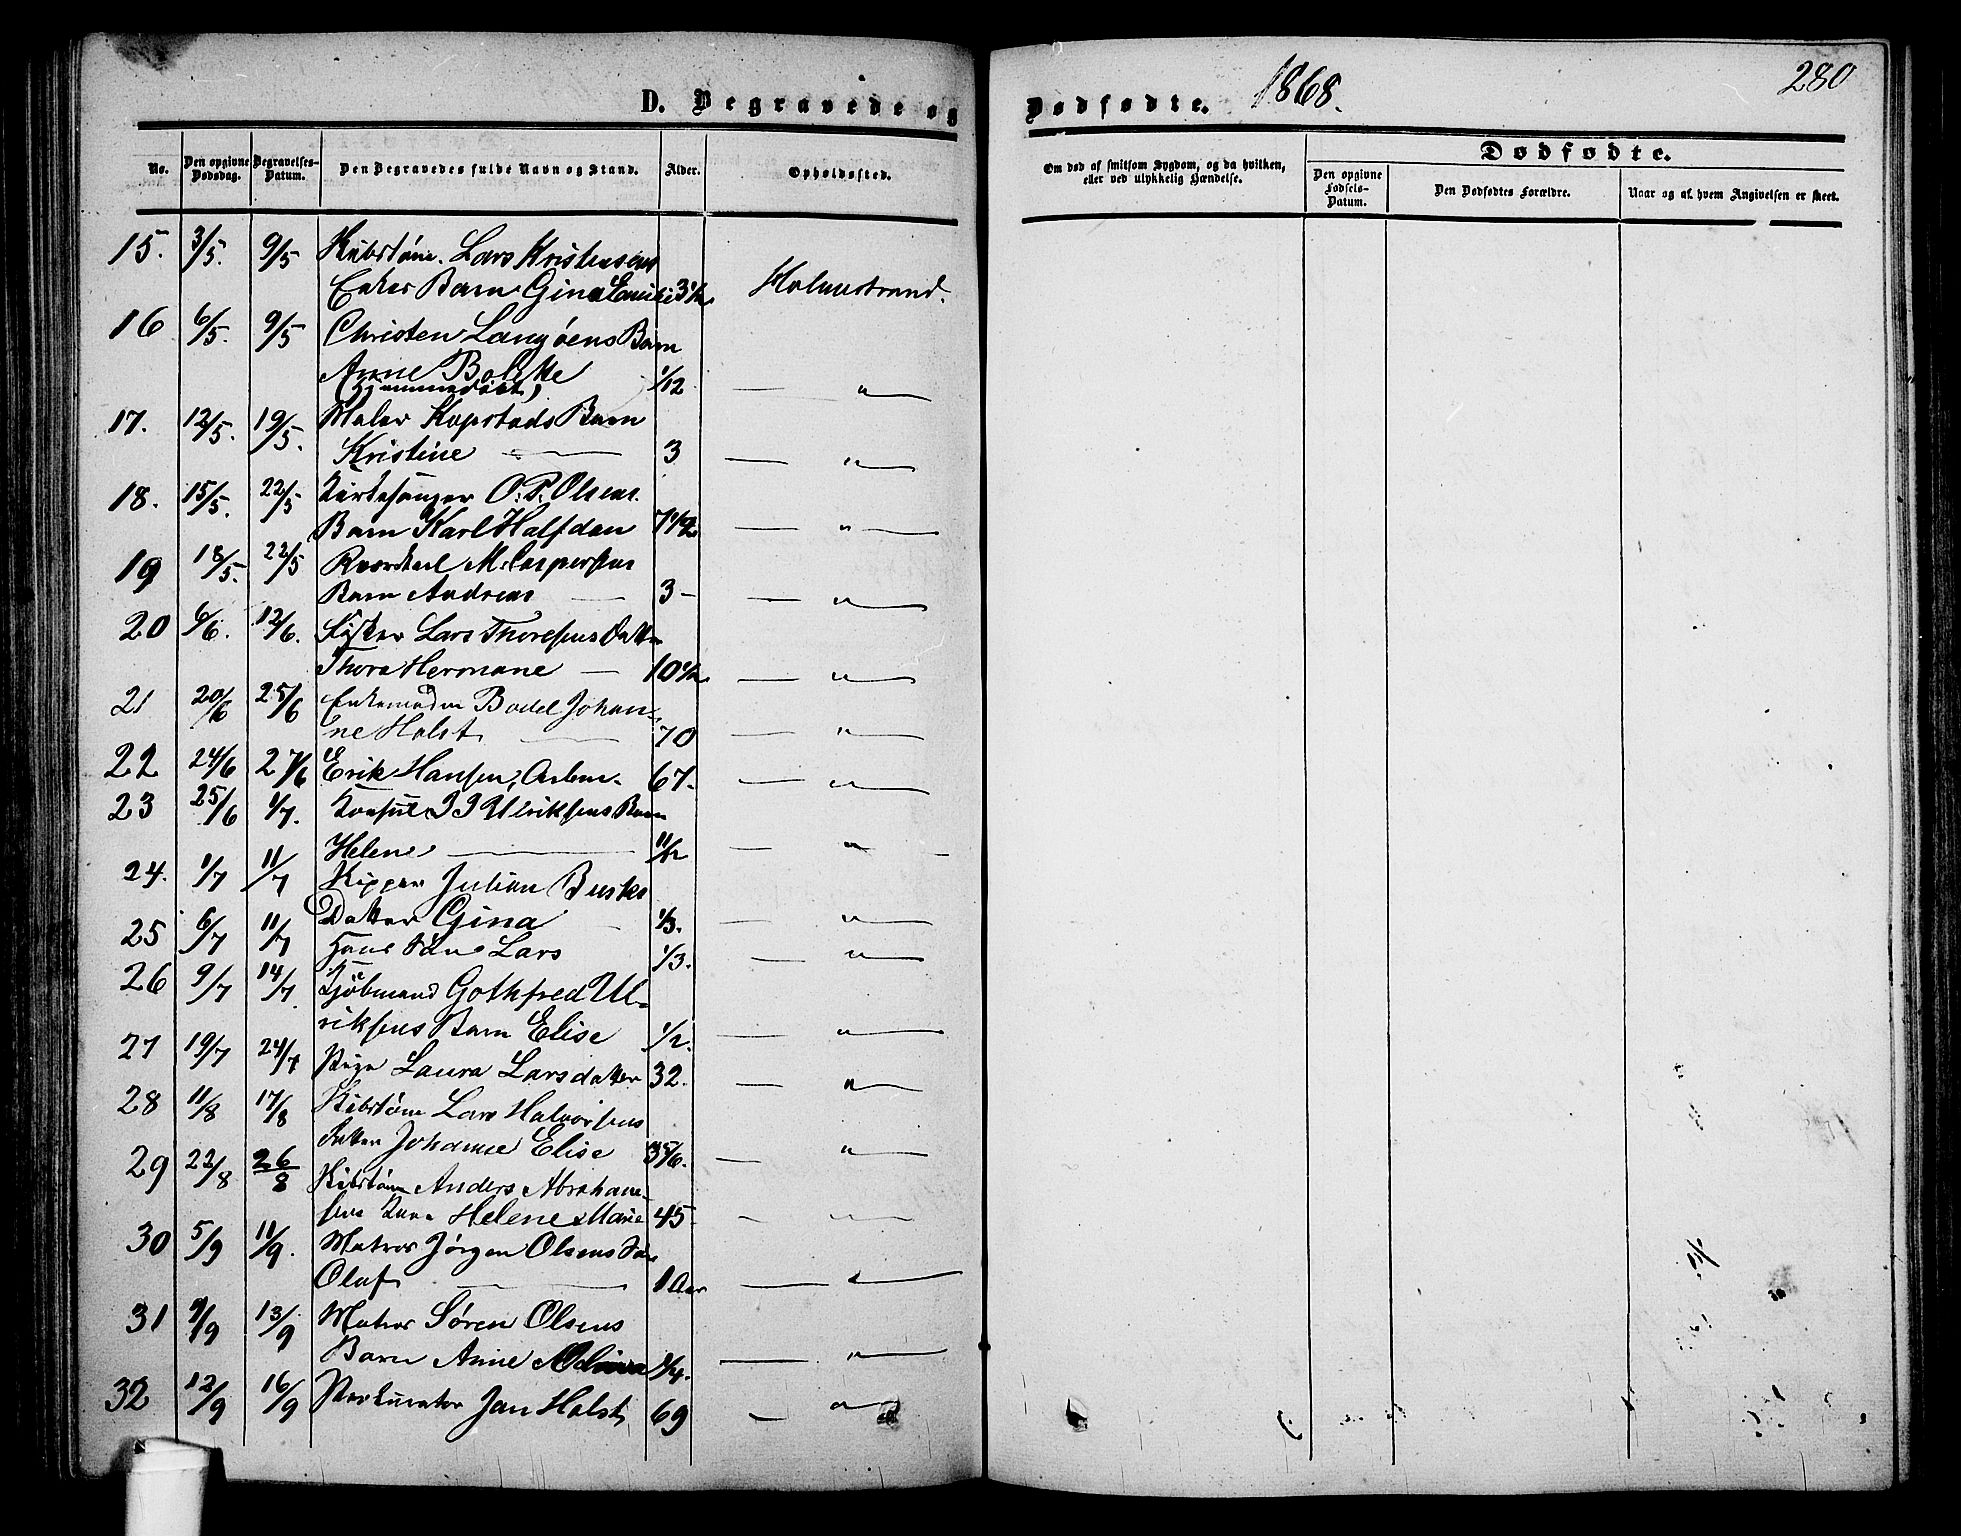 D. Begravede og Dødfødte. 1868. 280
No. Den opgivne Dødsdag. Begravelses-Datum. Den Begravedes fulde Navn og Stand. Alder. Opholdssted.
Om død af smitsom Sygdom, og da hvilken, eller ved ulykkelig Hændelse.
Dødfødte.
Den opgivne Fødsels-Datum. Den Dødfødtes Forældre. Naar og af hvem Angivelsen er skeet.
15. 3/5. 9/5 Lars Kristensens
Enkes Barn Gina Emilie 3 1/2 Holmestrand.
16 6/5. 9/5 Christen Langøens Barn
Anne Bolette 1/12 — " —
(Hjemmedøbt)
17. 12/5. 19/5. Maler Kopstads Barn
Kristine — 3 — " —
18. 15/5. 22/5 Kirkesanger O. P. Olsens
Barn Karl Halfdan 7 1/2 — " —
19 18/5. 22/5 M. Caspersens
Barn Andreas — 3 — — " —
20 6/6. 12/6. Fisker Lars Thoresens Datter
Thora Hermane — 10 1/2 — " —
21 20/6 25/6 Enkemadm Bodel Johan-
ne Holst — 70 — " —
22 24/6 27/6 Erik Hansen, Arbm. 67. — " —
23 25/6 1/7. Konsul J J Ulriksens Barn
Helene — 11/12 — " —
24. 1/7 11/7 Skipper Julian Busks
Datter Gina 1/3. — " —
25 6/7 11/7 Hans Søn Lars 1/3. — " —
26 9/7 14/7 Kjøbmand Gothfred Ul-
riksens Barn Elise 1/2. — " —
27 19/7 24/7 Pige Laura Larsdatter 32. — " —
28 11/8 17/8 Lars Halvorsens
Datter Johanne Elise 3 5/6. — " —
29 22/8 26/8 Anders Abraham-
sens Kone Helene Marie 45 — " —
30 5/9 11/9. Matros Jørgen Olsens Søn
Olaf — 1 Aar — " —
31 9/9 13/9 Matros Søren Olsens
Barn Anne 1/4. — " —
32 12/9 16/9 Prokurator Jan Holst, 69 — " —